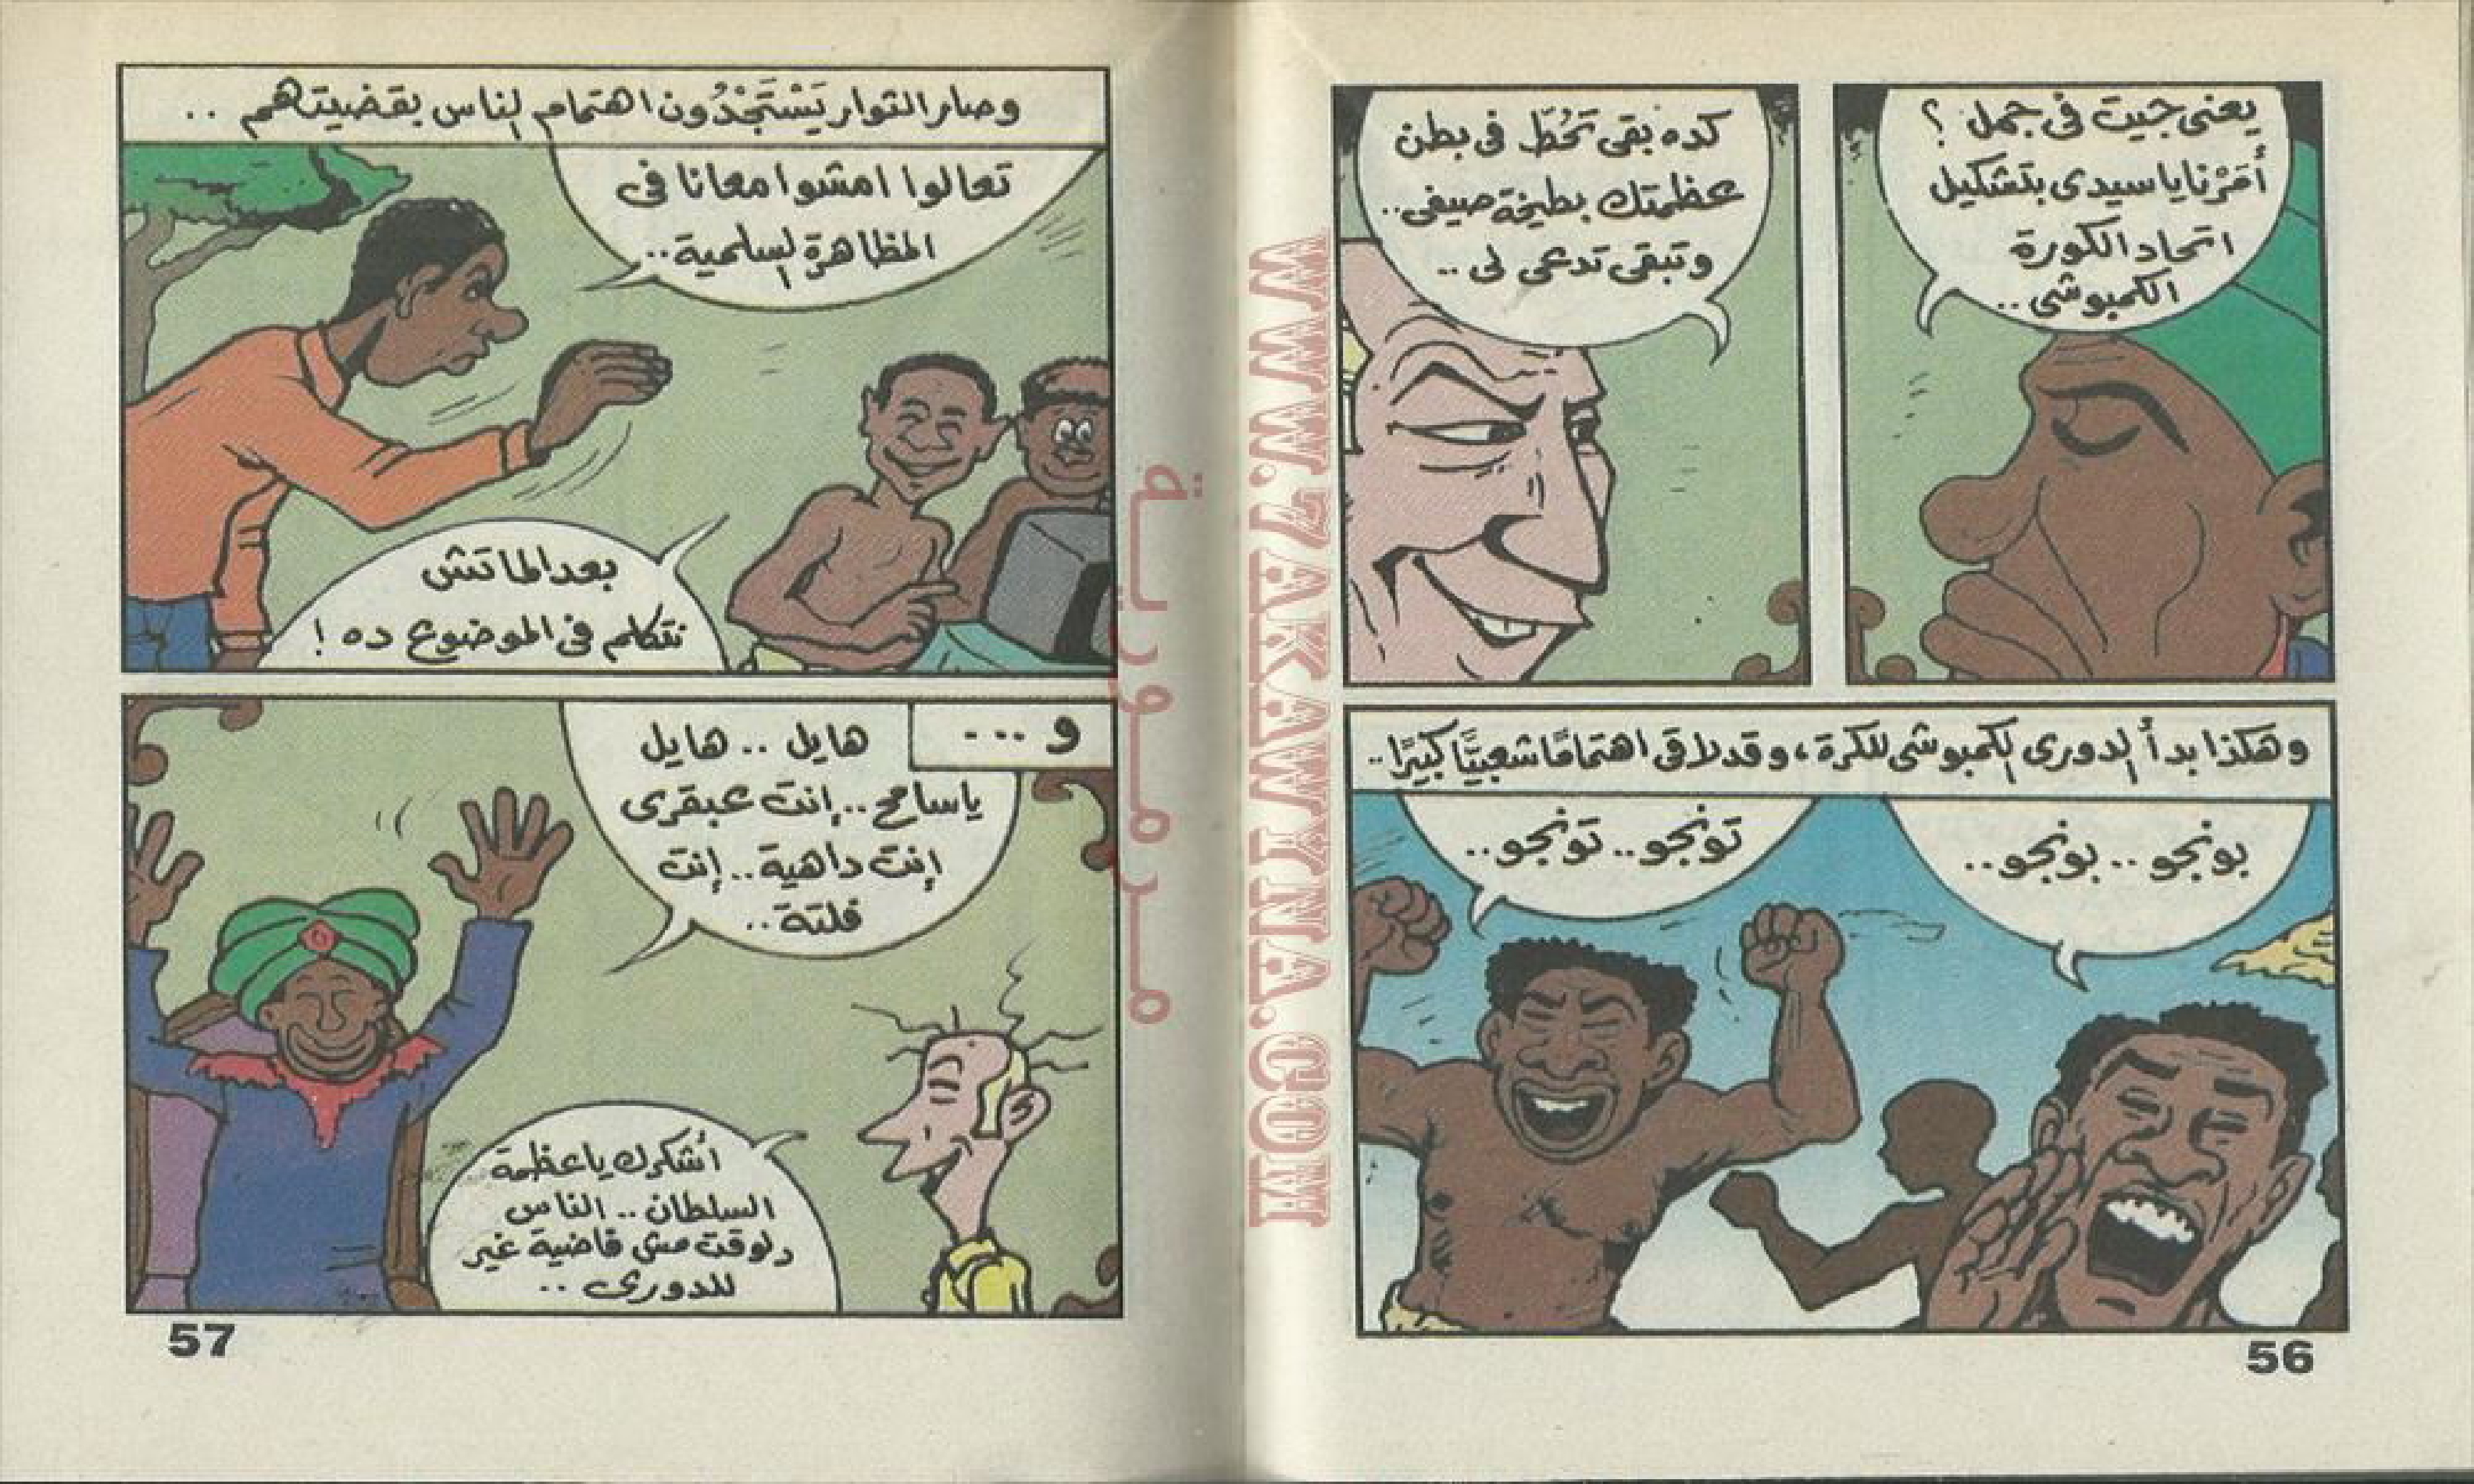 يعنى جيت فى جمل ؟
أمَرْنا ياسيدى بتشكيل
اتحاد الكورة
الكمبوشى ..
كده بقى تحُطّ فى بطن
عظمتك بطيخة صيفى ..
وتبقى تدعى لى ..
وهكذا بدأ الدورى الكمبوشى للكرة ، وقد لاقى اهتمامًا شعبيًّا كبيرًا ..
بونجو .. بونجو ..
تونجو .. تونجو ..
56
وصار الثوار يَسْتَجْدُون اهتمام الناس بقضيتهم ..
تعالوا امشوا معانا فى
المظاهرة السلمية ..
بعد الماتش
نتكلم فى الموضوع ده !
و ...
هايل .. هايل
ياسامح .. إنت عبقرى
إنت داهية .. إنت
فلتة ..
أشكرك ياعظمة
السلطان .. الناس
دلوقت مش فاضية غير
للدورى ..
57
مدرمورية
WWW.ZAKAWNA.COM